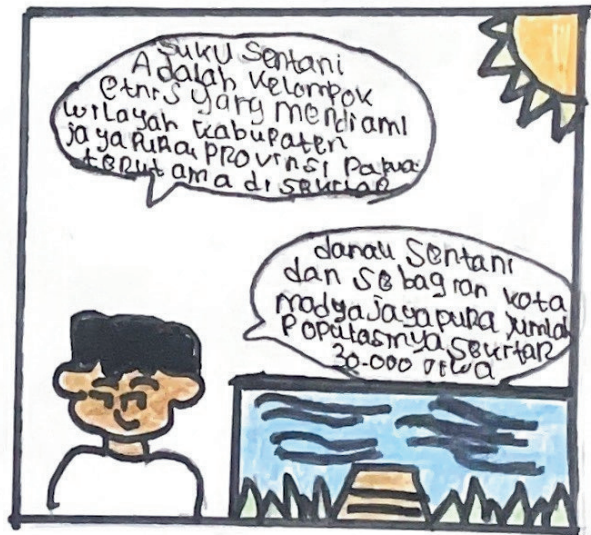 Suku Sentani
Adalah Kelompok
etnis yang mendiami
wilayah Kabupaten
jayapura, Provinsi Papua
terutama di sekitar
danau Sentani
dan Sebagian kota
madya jayapura jumlah
Populasinya Sekitar
30.000 Jiwa